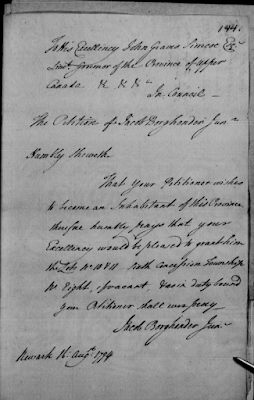 144.
To His Excellency John Graves Simcoe Esqr
Lieut. governor of the Province of upper
Canada &c &c &c
In Council
The Petition of Jacob Junr
Humbly Sheweth
That Your Petitioner wishes
to become an Inhabitant of this Province
therefore humbly prays that your
Excellency would be pleased to grant him
the Lots No 10 & 11 Concession Township
No Eight, if vacant, & as in duty bound
your Petitioner shall ever pray
Jacob Junr
Newark Augt 1794